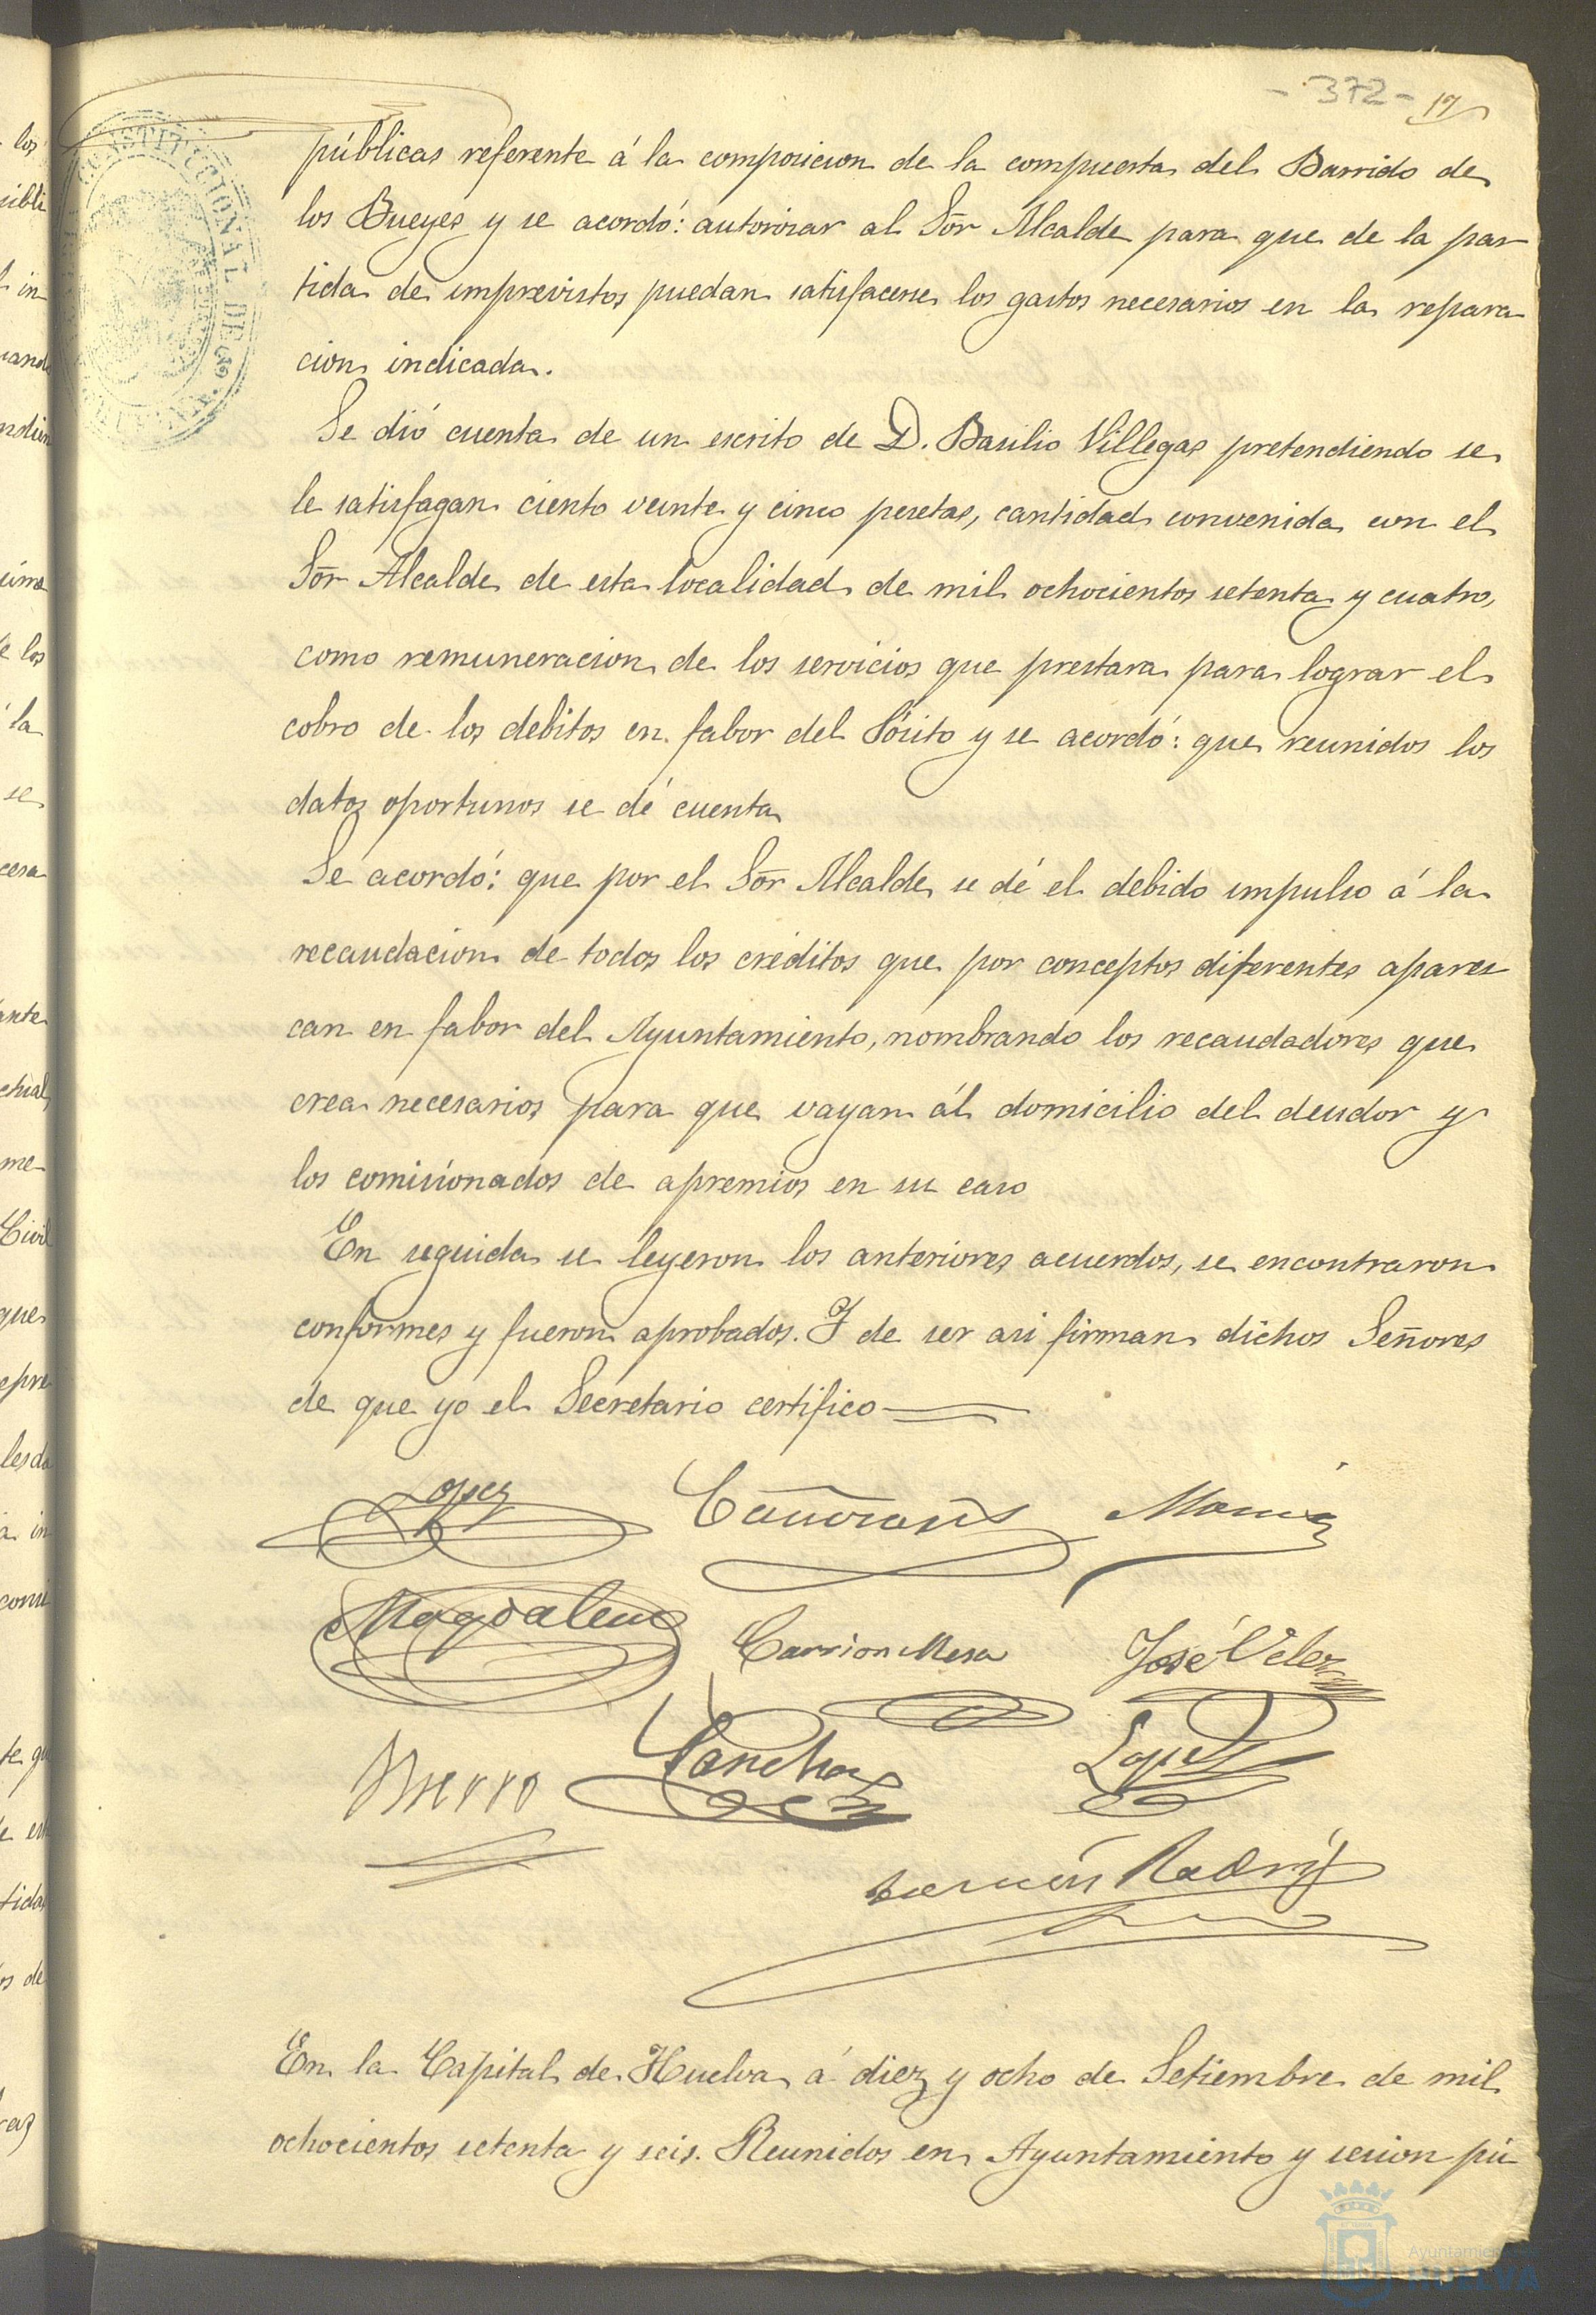 - 372 - 17
públicas referente á la composicion de la compuerta del Barrido de
los Bueyes y se acordó: autorizar al Sōr Alcalde para que de la par-
tida de imprevistos puedan satisfacerse los gastos necesarios en la repara
cion indicada.
Se dió cuenta de un escrito de D. Basilio Villegas pretendiendo se
le satisfagan ciento veinte y cinco pesetas, cantidad convenida con el
Sōr Alcalde de esta localidad de mil ochocientos setenta y cuatro,
como remuneracion de los servicios que prestara para lograr el
cobro de los debitos en fabor del Pósito y se acordó: que reunidos los
datos oportunos se dé cuenta
Se acordó: que por el Sōr Alcalde se dé el debido impulso á la
recaudacion de todos los creditos que por conceptos diferentes aparez
can en fabor del Ayuntamiento, nombrando los recaudadores que
crea necesarios para que vayan ál domicilio del deudor y
los comisionados de apremios en su caso
En seguida se leyeron los anteriores acuerdos, se encontraron
conformes y fueron aprobados. Y de ser asi firman dichos Señores
de que yo el Secretario certifico
Lopez
Magdalena Carrion Mesa José Velez
Sanchez Lopez
En la Capital de Huelva á diez y ocho de Setiembre de mil
ochocientos setenta y seis. Reunidos en Ayuntamiento y sesion pú-
CONSTITUCIONAL DE
Ayuntamie
HUELVA